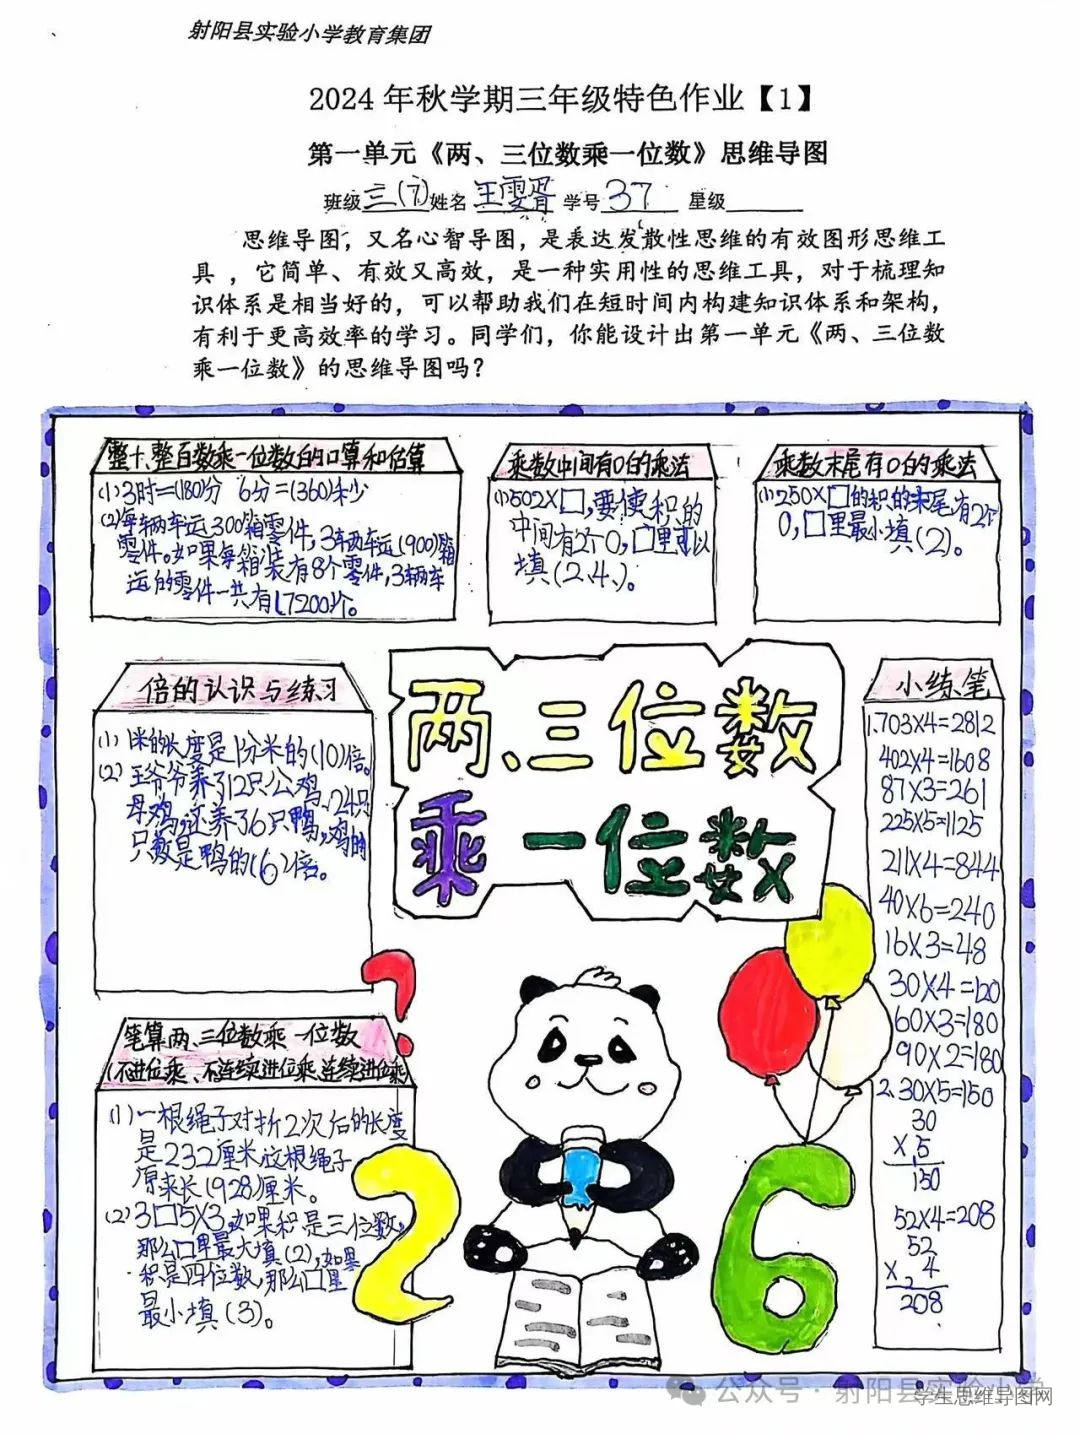 射阳县实验小学教育集团
2024年秋学期三年级特色作业【1】
第一单元《两、三位数乘一位数》思维导图
班级三(7)姓名王雯胥 学号37 星级
思维导图，又名心智导图，是表达发散性思维的有效图形思维工
具 ，它简单、有效又高效，是一种实用性的思维工具，对于梳理知
识体系是相当好的，可以帮助我们在短时间内构建知识体系和架构，
有利于更高效率的学习。同学们，你能设计出第一单元《两、三位数
乘一位数》的思维导图吗？
整十、整百数乘一位数的口算和估算
(1)3时=(180)分 6分=(360)秒
(2)每辆车运300箱零件，3辆车运(900)箱
零件。如果每箱装有8个零件，3辆车
运的零件一共有(7200)个。
乘数中间有0的乘法
(1)502×口，要使积的
中间有2个0，口里可以
填(2.4、)。
乘数末尾有0的乘法
(1)250×口的积的末尾有2个
0，口里最小填(2)。
倍的认识与练习
(1) 1米的长度是1分米的(10)倍。
(2) 王爷爷养了12只公鸡、24只
母鸡，还养了6只鸭，鸡的
只数是鸭的(6)倍。
两、三位数
乘一位数
小练笔
1.703×4=2812
402×4=1608
87×3=261
225×5=1125
211×4=844
40×6=240
16×3=48
30×4=120
60×3=180
90×2=180
2.30×5=150
30
× 5
150
52×4=208
52
× 4
208
笔算两、三位数乘一位数
(不进位乘、不连续进位乘、连续进位乘)
(1)一根绳子对折2次后的长度
是232厘米，这根绳子
原来长(928)厘米。
(2)3口5×3，如果积是三位数，
那么口里最大填(2)，如果
积是四位数，那么口里
最小填(3)。
?
2
6
公众号·射阳县实验小学
学生思维导图网